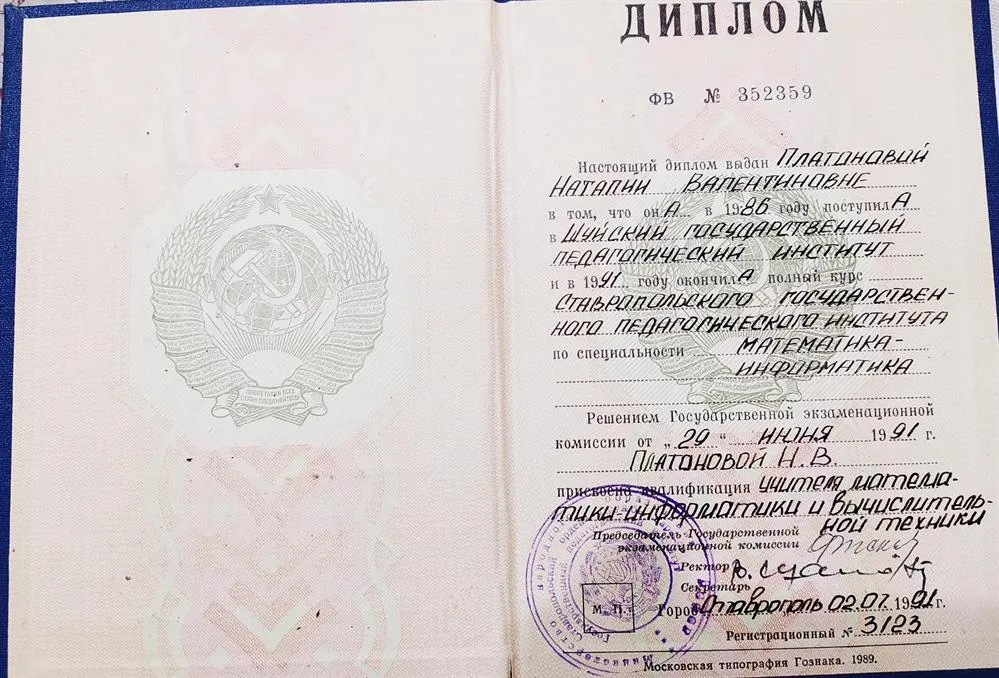 ДИПЛОМ
ФВ № 352359
Настоящий диплом выдан ПЛАТОНОВОЙ
НАТАЛИИ ВАЛЕНТИНОВНЕ
в том, что онА в 1986 году поступилА
в ШУЙСКИЙ ГОСУДАРСТВЕННЫЙ
ПЕДАГОГИЧЕСКИЙ ИНСТИТУТ
и в 1991 году окончилА полный курс
СТАВРОПОЛЬСКОГО ГОСУДАРСТВЕН-
НОГО ПЕДАГОГИЧЕСКОГО ИНСТИТУТА
по специальности МАТЕМАТИКА-
ИНФОРМАТИКА
Решением Государственной экзаменационной
комиссии от „29“ ИЮНЯ 1991 г.
ПЛАТОНОВОЙ Н.В.
присвоена квалификация учителя матема-
тики-информатики и вычислитель-
ной техники
Председатель Государственной
экзаменационной комиссии
Ректор
Секретарь
М. П.
Город Ставрополь 02.07 1991 г.
Регистрационный № 3123
Московская типография Гознака. 1989.